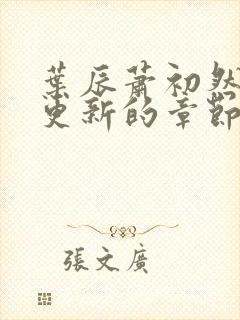 葉辰蕭初然
更新的章節
張文廣